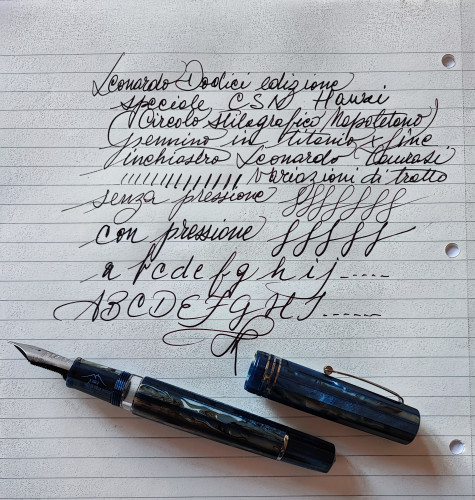 Leonardo Dodici edizione
speciale CSN Hawai
(Circolo stilografico Napoletano)
pennino in titanio fine
inchiostro Leonardo
variazioni di tratto
senza pressione ffffffff
con pressione fffff
a b c d e f g h i j .....
A B C D E F G H I ......